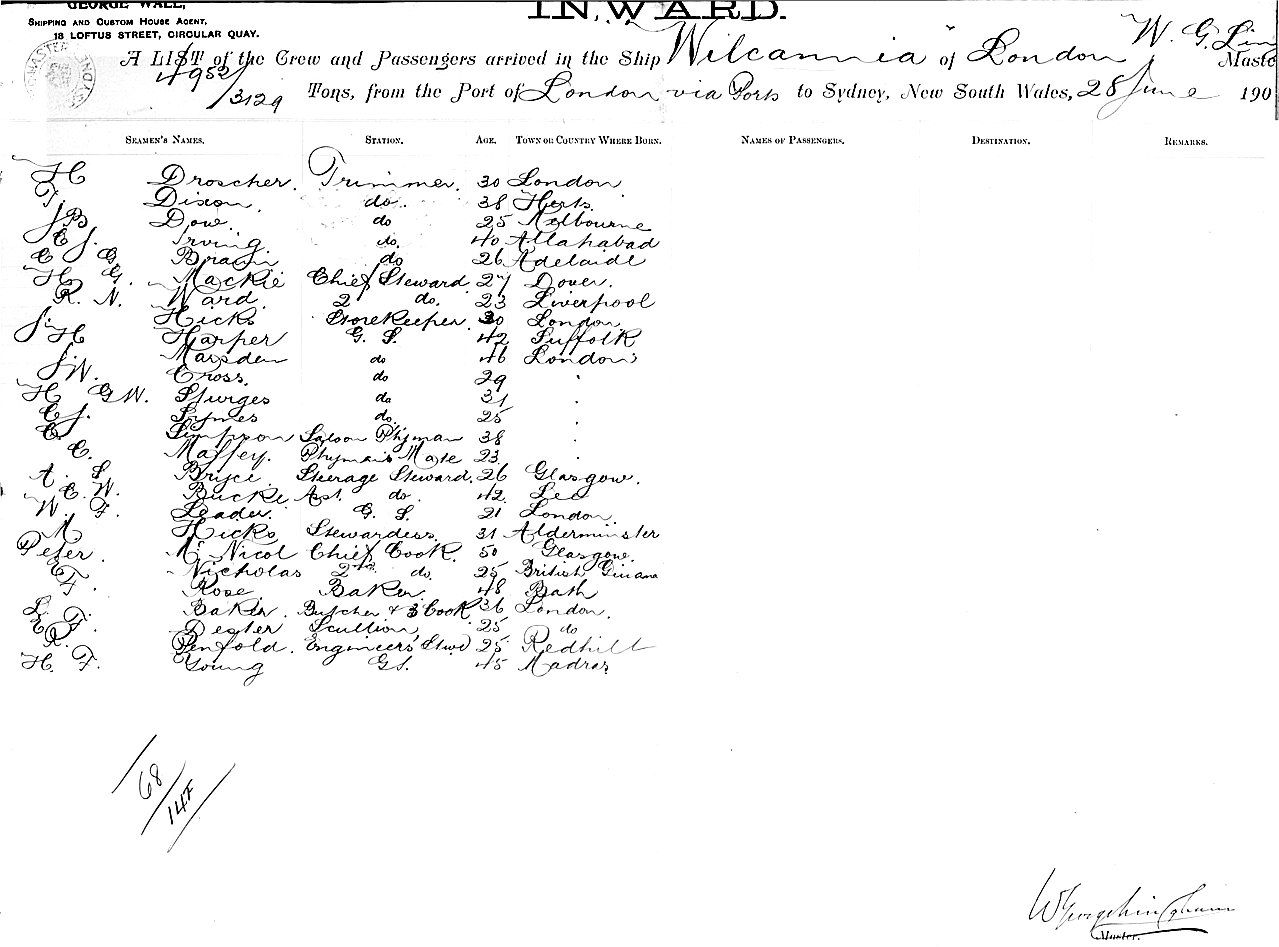 GEORGE WALL,
SHIPPING AND CUSTOM HOUSE AGENT,
18 LOFTUS STREET, CIRCULAR QUAY.
INWARD.
W. G. Lin
A LIST of the Crew and Passengers arrived in the Ship "Wilcannia" of London Maste
4953/3129 Tons, from the Port of London via Ports to Sydney, New South Wales, 28 June 190
SEAMEN'S NAMES. STATION. AGE. TOWN OR COUNTRY WHERE BORN. NAMES OF PASSENGERS. DESTINATION. REMARKS.
H Droscher. Trimmer. 30 London
T. Dixon. do. 38 Herts.
J B Dow. do 25 Melbourne
C J. Irving. do. 40 Allahabad
C G. Braun do 26 Adelaide
H G. Mackie Chief Steward 27 Dover.
R. N. Ward. 2 do. 23 Liverpool
Hicks Storekeeper. 30 London
J. H Harper G. S. 42 Suffolk
Marsden do 46 London
J W. Cross. do 29 "
H G W. Sturges do 31 "
C J. Symes do. 25 "
C. Simpson Saloon Ptyman 38 "
C. Massey. Ptyman's Mate 23 "
A. S. Bryce Steerage Steward. 26 Glasgow.
C. W. Bucke Asst. do. 42 Lee
W. F. Leader. G. S. 21 London
M Hicks Stewardess. 31 Alderminster
Peter. McNicol Chief Cook. 50 Glasgow.
Nicholas 2nd do. 25 British Guiana
F. Rose Baker. 48 Bath
L. Baker. Butcher & 3 Cook 36 London.
E F. Dester Scullion 25 do
R. Penfold. Engineers' Stwd 25 Redhill
H. F. Young GS. 45 Madras
68/147
Master.